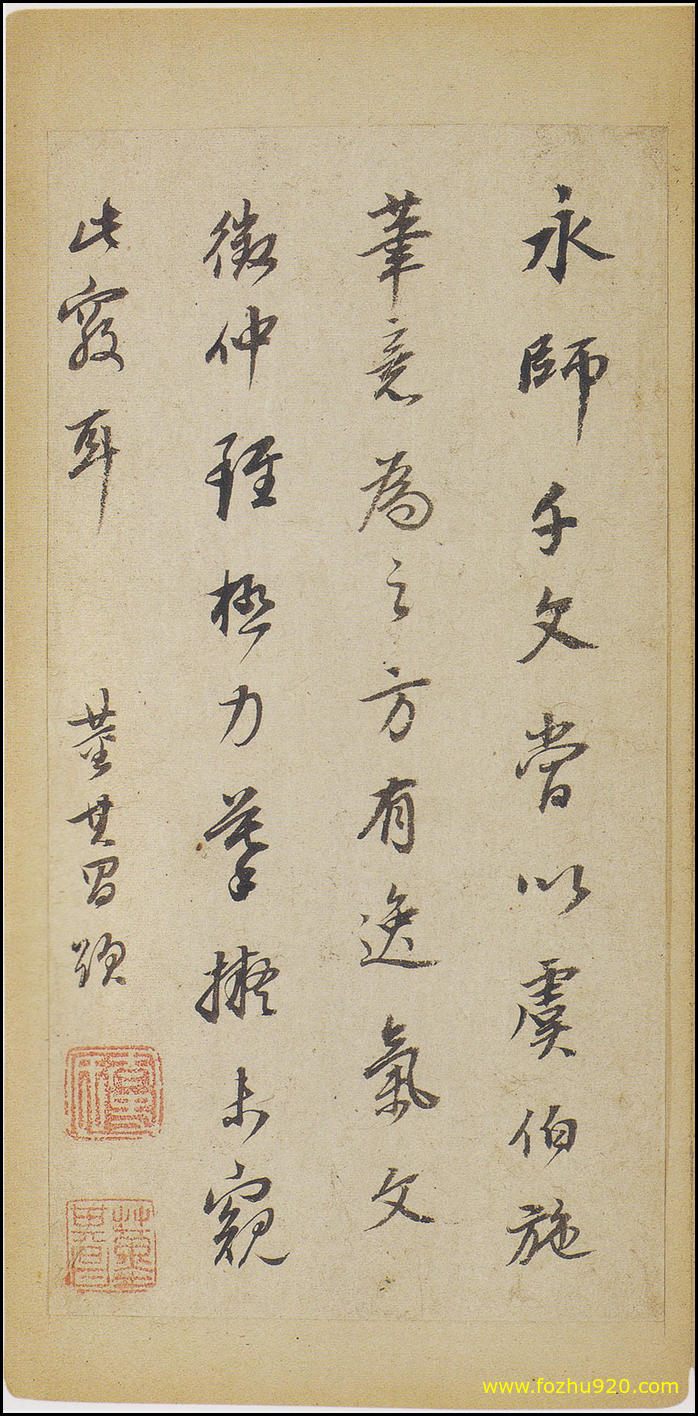 永師千文嘗以虞伯施
筆意為之方有逸氣文
徵仲雖極力摹擬未窺
此竅耳
董其昌題
董其昌
www.fozhu920.com